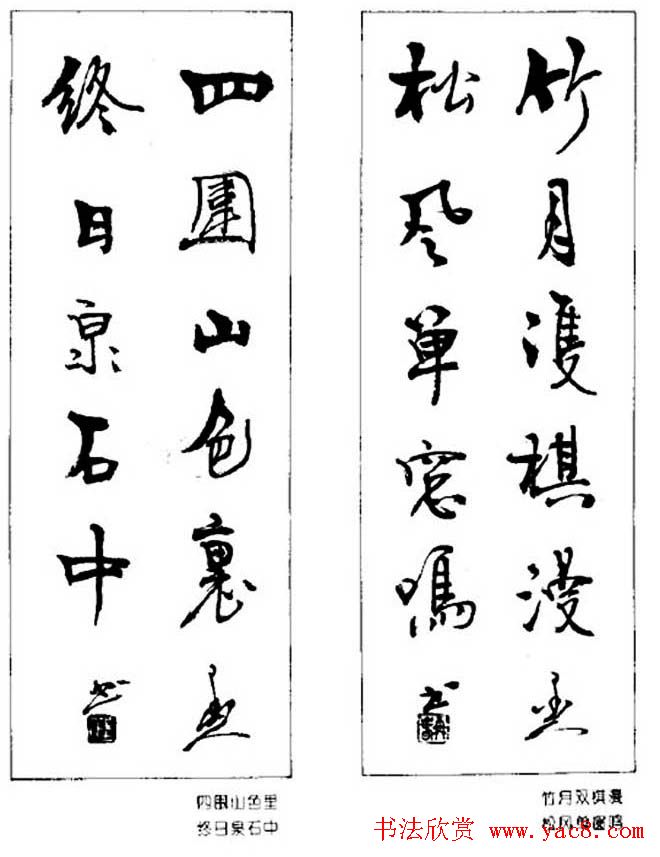 竹月雙棋漫
松风單窓鳴
四圍山色裏
終日泉石中
四围山色里
终日泉石中
竹月双棋漫
松风单窗鸣
书法欣赏 www.yac8.com